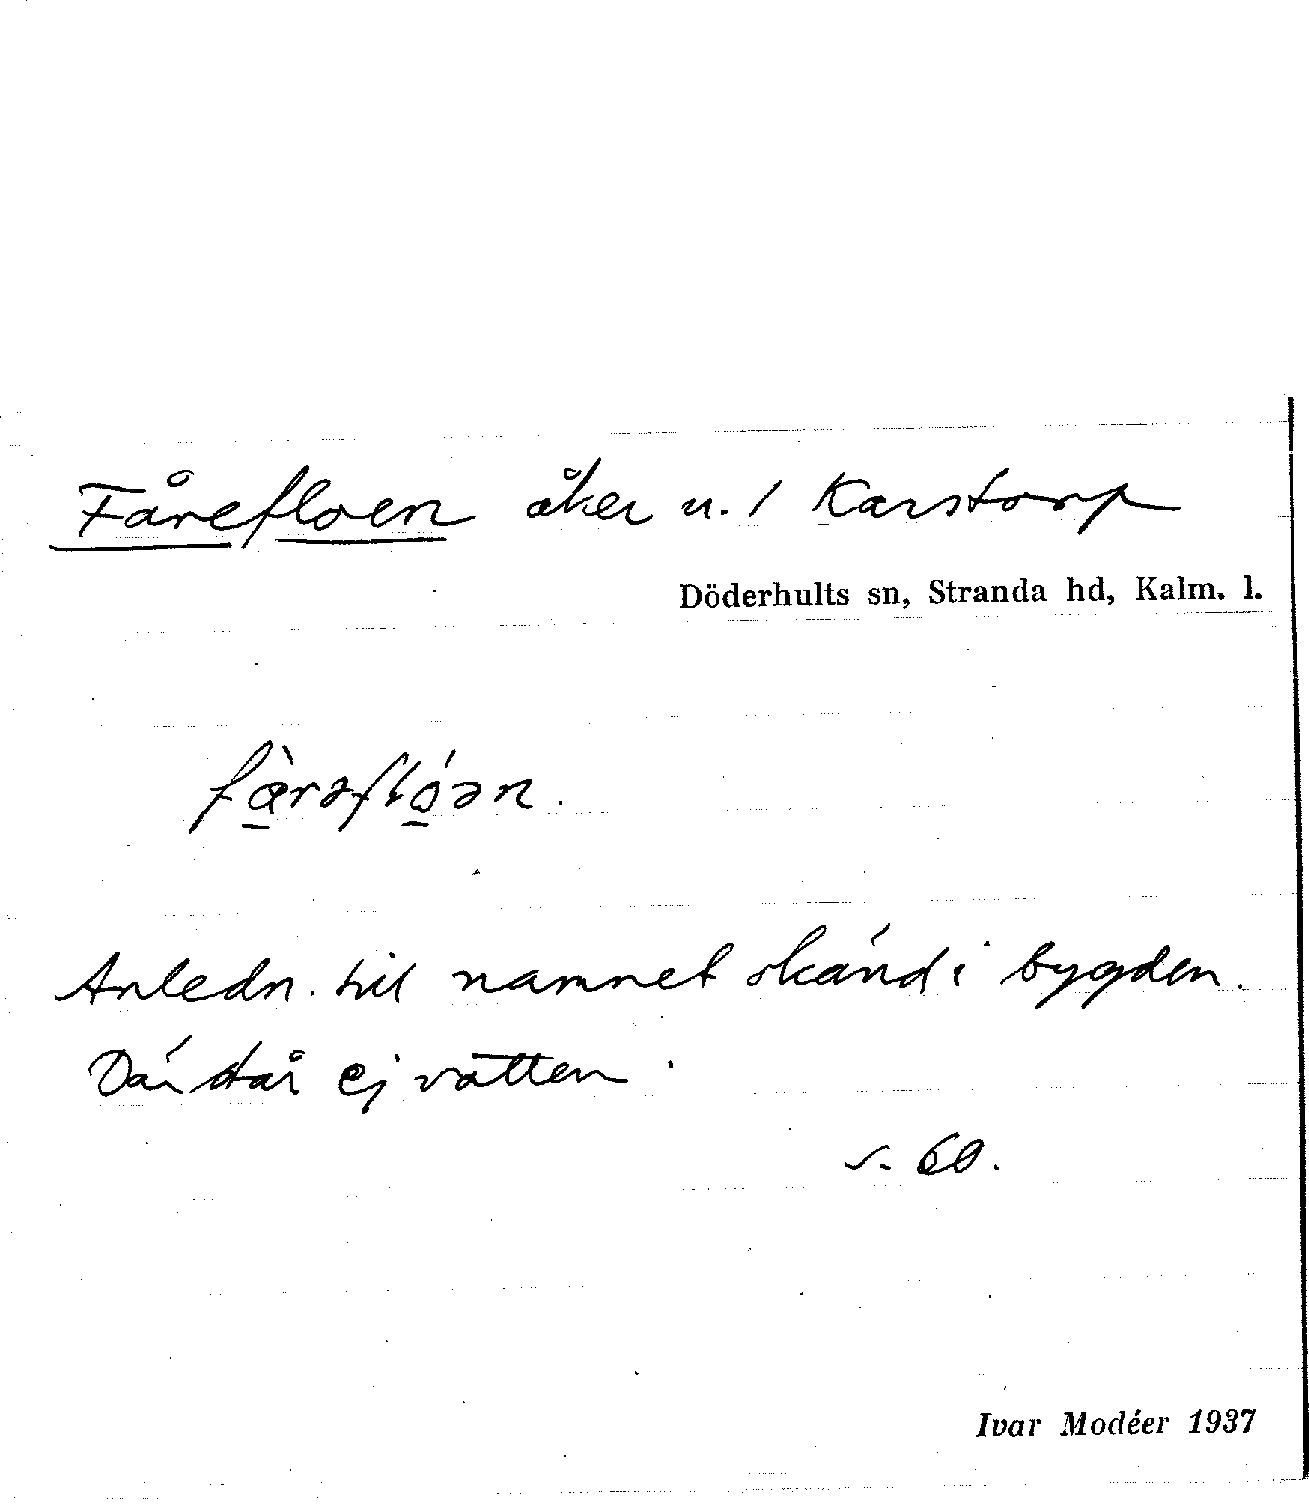 Fårefloen åker u. / Karstorp
Döderhults sn, Stranda hd, Kalm. l.
fæ̀rəflóən.
Anledn. till namnet okänd i bygden.
Där står ej vatten.
s. 60.
Ivar Modéer 1937